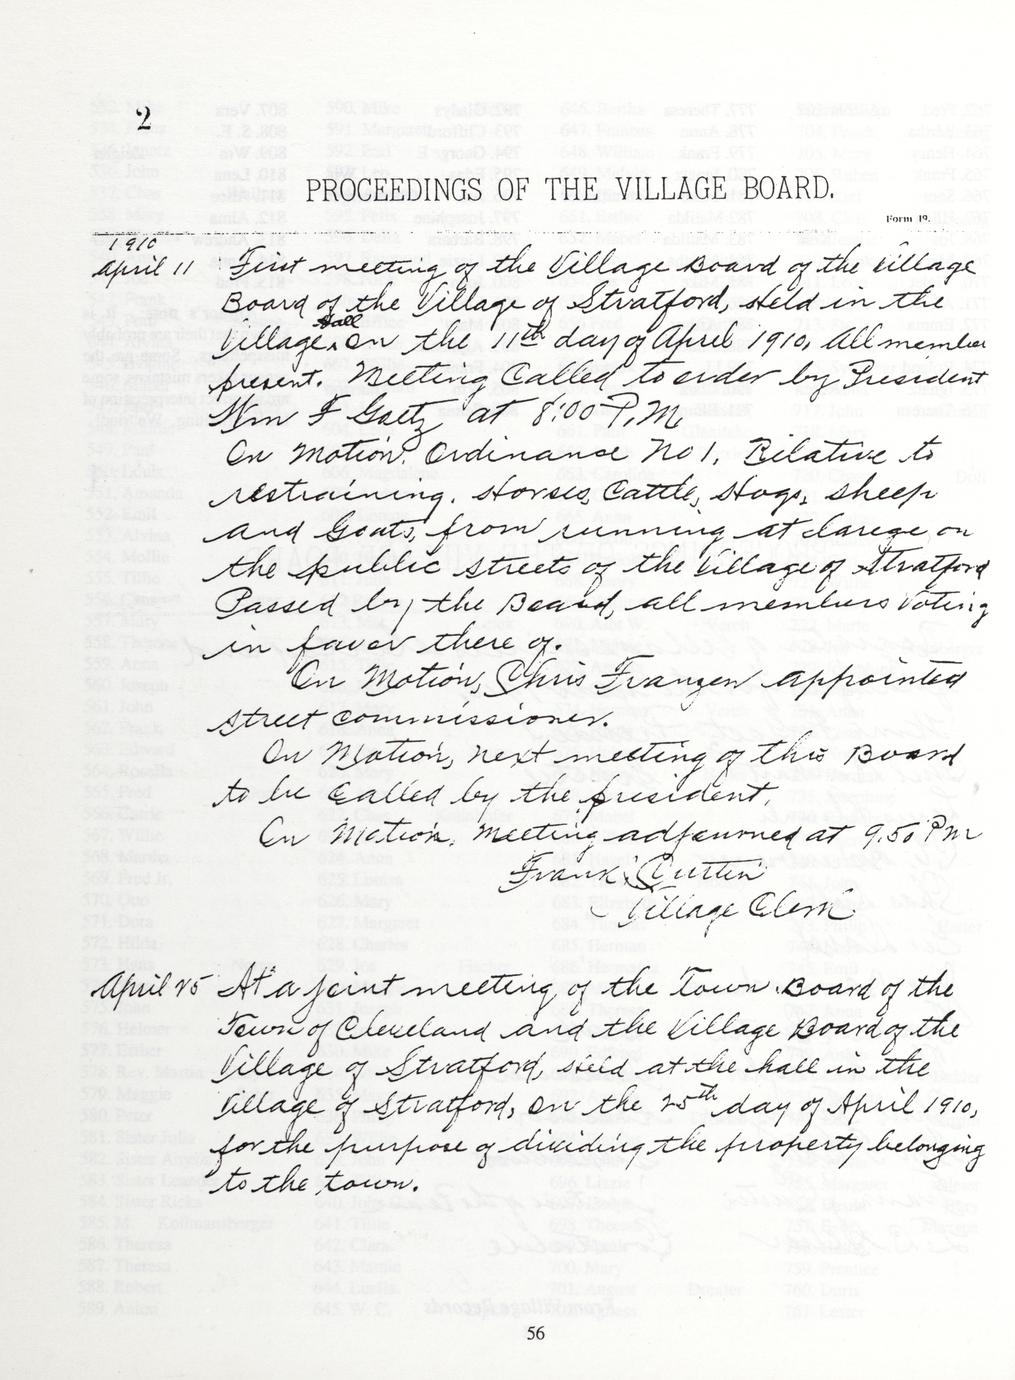 2
PROCEEDINGS OF THE VILLAGE BOARD.
Form 19.
1910
April 11 First meeting of the Village Board of the Village
Board of the Village of Stratford, Held in the
Village Hall, on the 11th day of April 1910, All member
present. Meeting Called to order by President
Wm F Goetz at 8:00 P.M.
On Motion, Ordinance No 1, Rilative to
restraining, Horses, Cattle, Hogs, sheep
and Goats, from running at larege, on
the public streets of the Village of Stratford
Passed by the Board, all members Voting
in favor there of.
On Motion, Chris Franzen appointed
street commissioner.
On Motion, next meeting of this Board
to be called by the president,
On Motion, Meeting adjourned at 9.50 PM
Frank Curtin
Village Clerk
April 25 At a joint meeting of the Town Board of the
Town of Cleveland and the Village Board of the
Village of Stratford, Held at the hall in the
Village of Stratford, on the 25th day of April 1910,
for the purpose of dividing the property belonging
to the town.
56